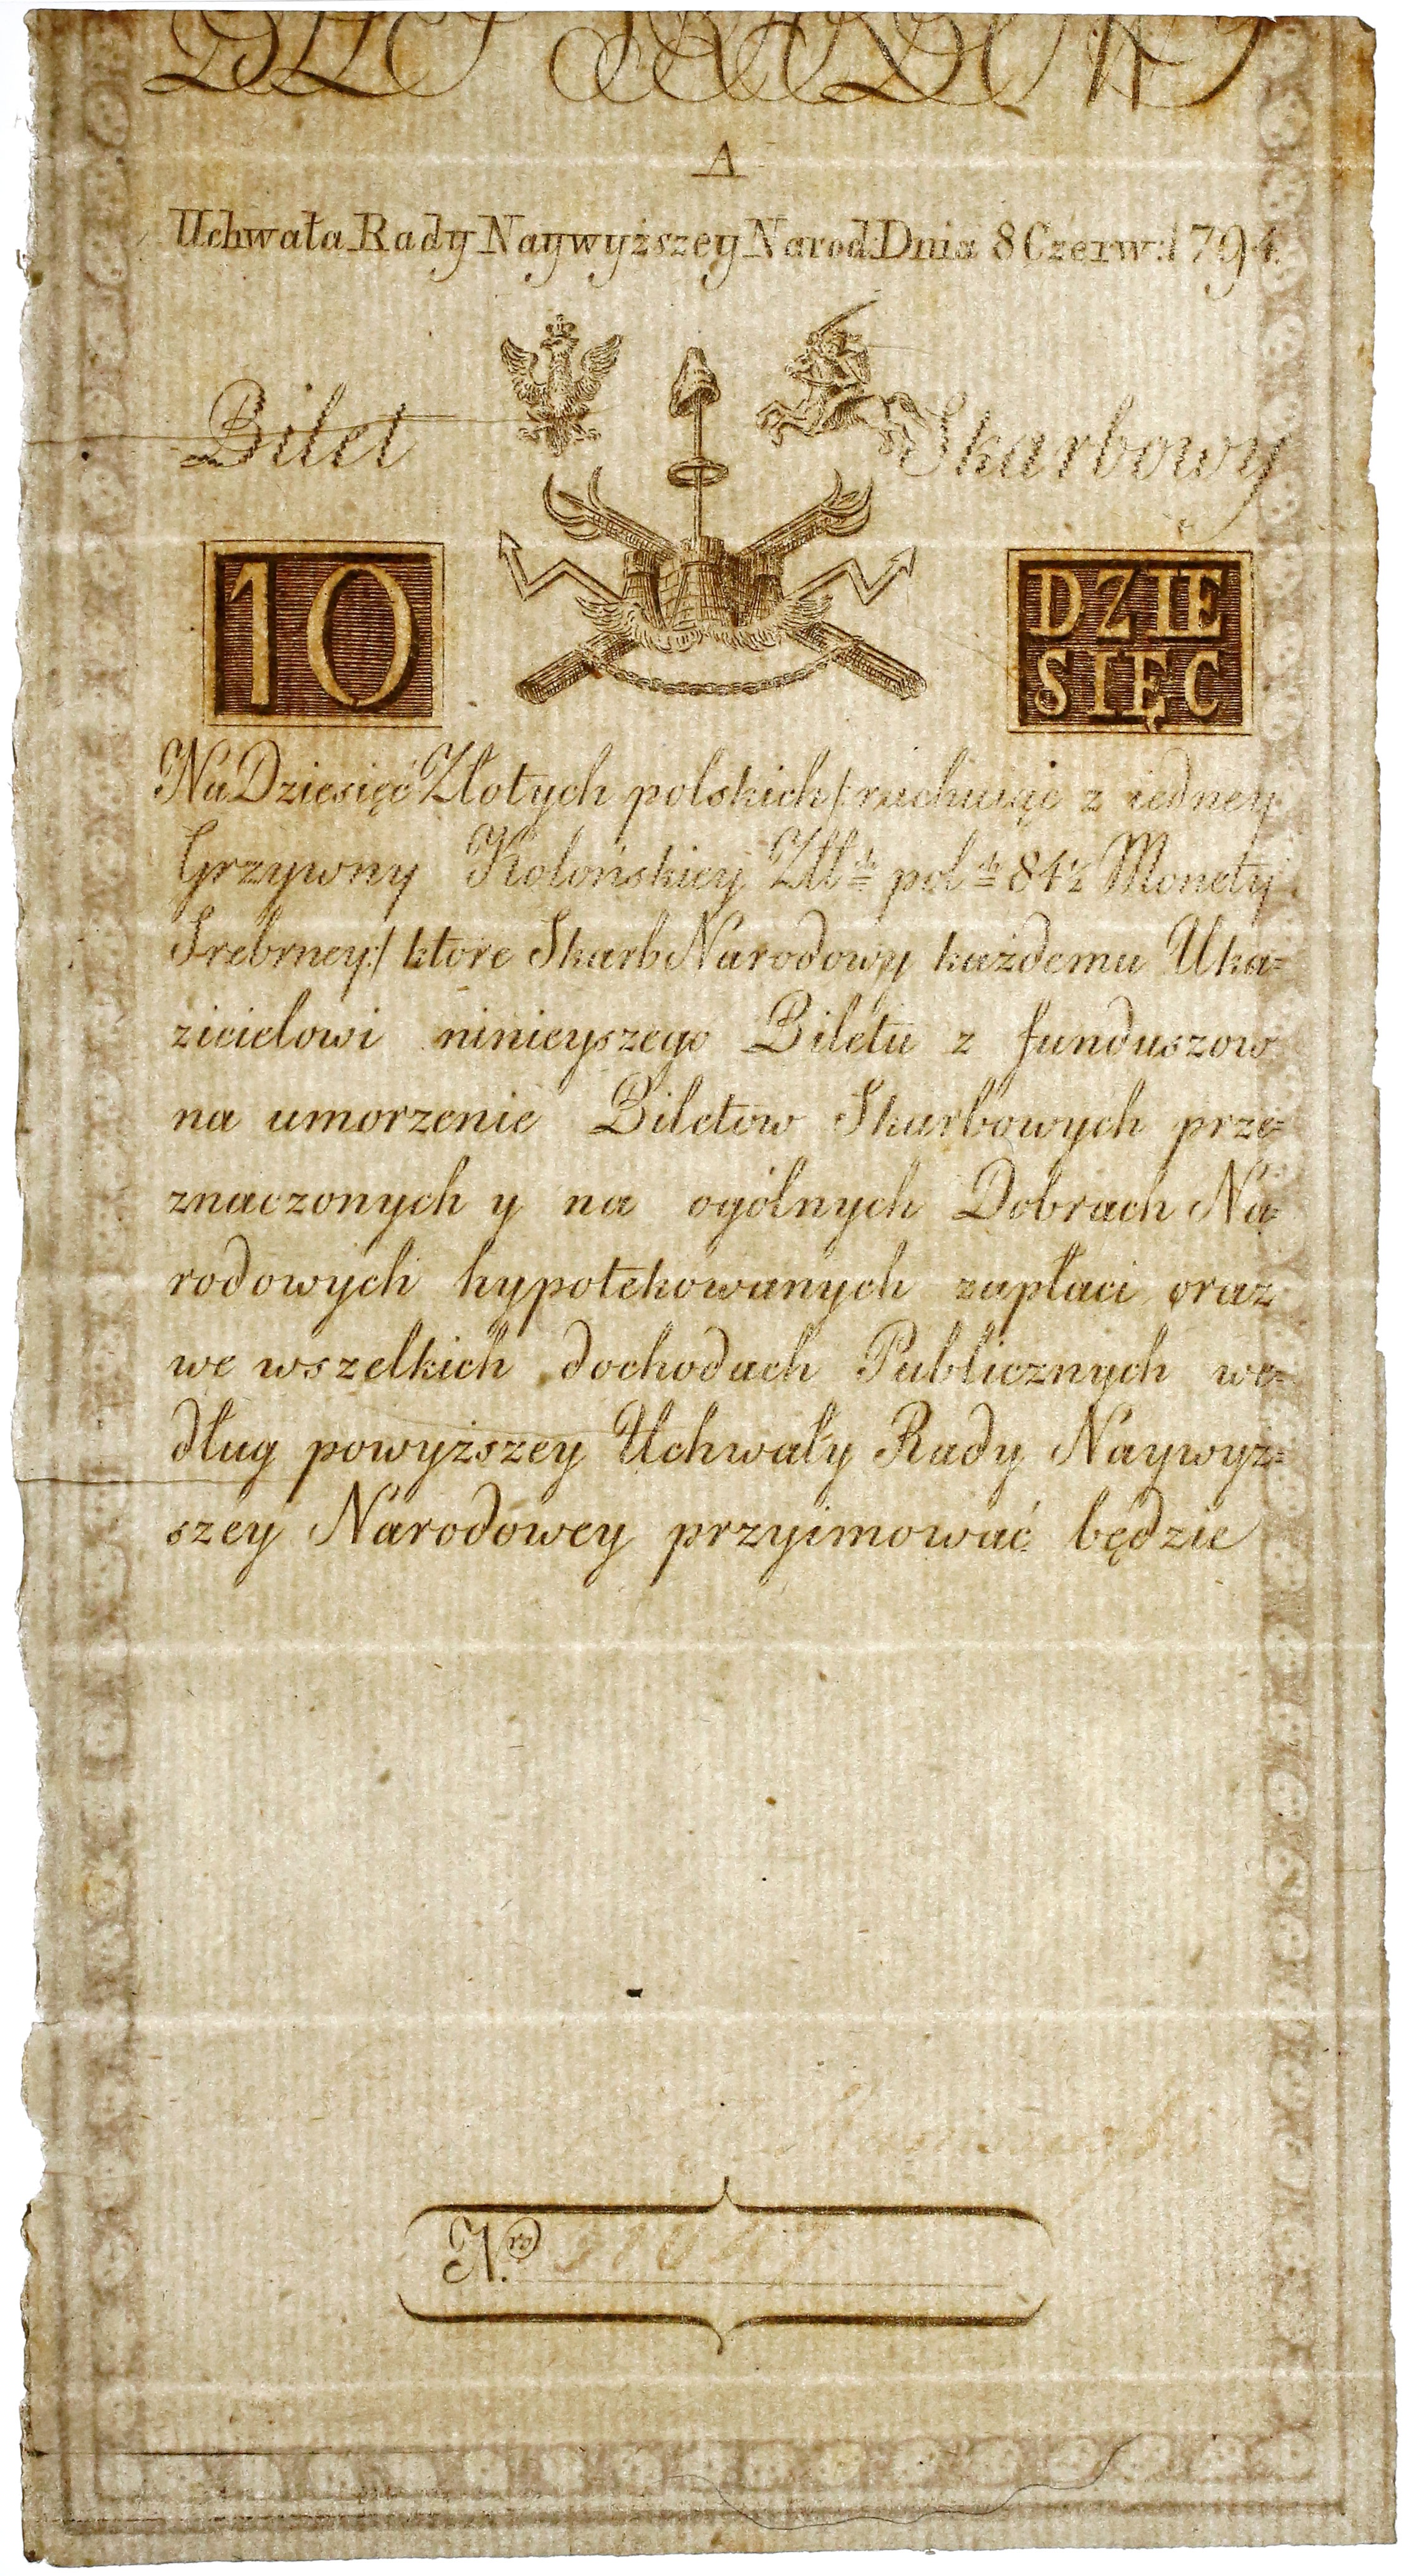 A
Uchwała Rady Naywyższey Narod: Dnia 8 Czerw: 1794.
Bilet Skarbowy
10 DZIE
SIĘC
Na Dziesięć Złotych polskich /: rachuiąc z iedney
Grzywny Kolońskiey Złł:ch pol:ch 84½ Monety
Srebrney :/ które Skarb Narodowy każdemu Uka=
zicielowi ninieyszego Biletu z funduszow
na umorzenie Biletow Skarbowych prze=
znaczonych y na ogólnych Dobrach Na=
rodowych hypotekowanych zapłaci oraz
we wszelkich dochodach Publicznych we=
dług powyższey Uchwały Rady Naywyż=
szey Narodowey przyimować będzie
N.ro